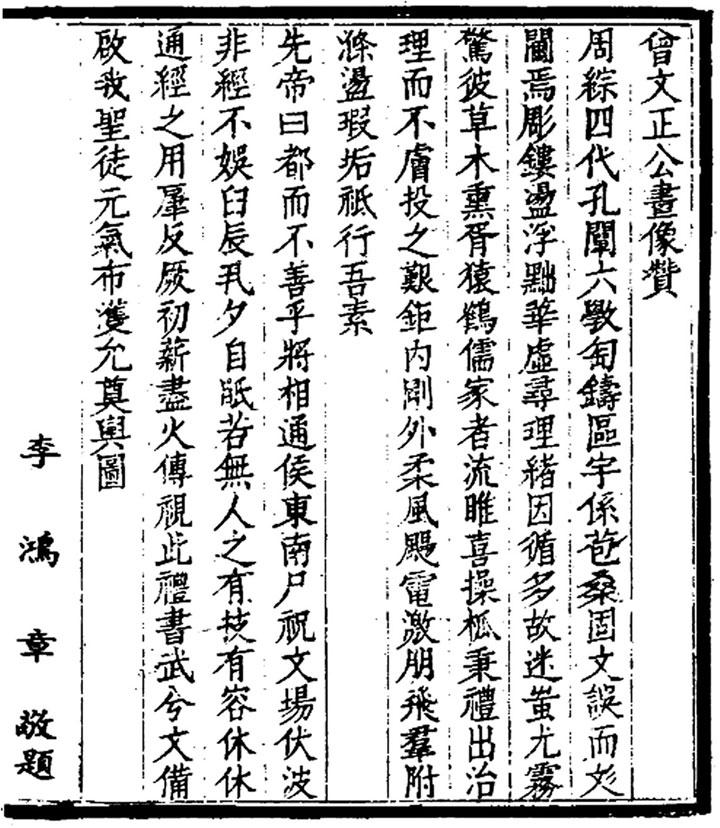 曾文正公畫像贊
周綜四代孔闡六斆匋鑄區宇係苞桑固文誤而彣
闠焉彫鏤盪浮黜華虛尋理緒因循多故迷蚩尤霧
驚彼草木熏胥猿鶴儒家者流睢喜操觚秉禮出治
理而不膚投之艱鉅內剛外柔風颺電激朋飛羣附
滌盪瑕垢祇行吾素
先帝曰都而不善乎將相通侯東南尸祝文場伏波
非經不娛臼辰丮夕自眂若無人之有技有容休休
通經之用肇反厥初薪盡火傳視此禮書武兮文備
啟我聖徒元氣布濩允奠輿圖
李鴻章敬題